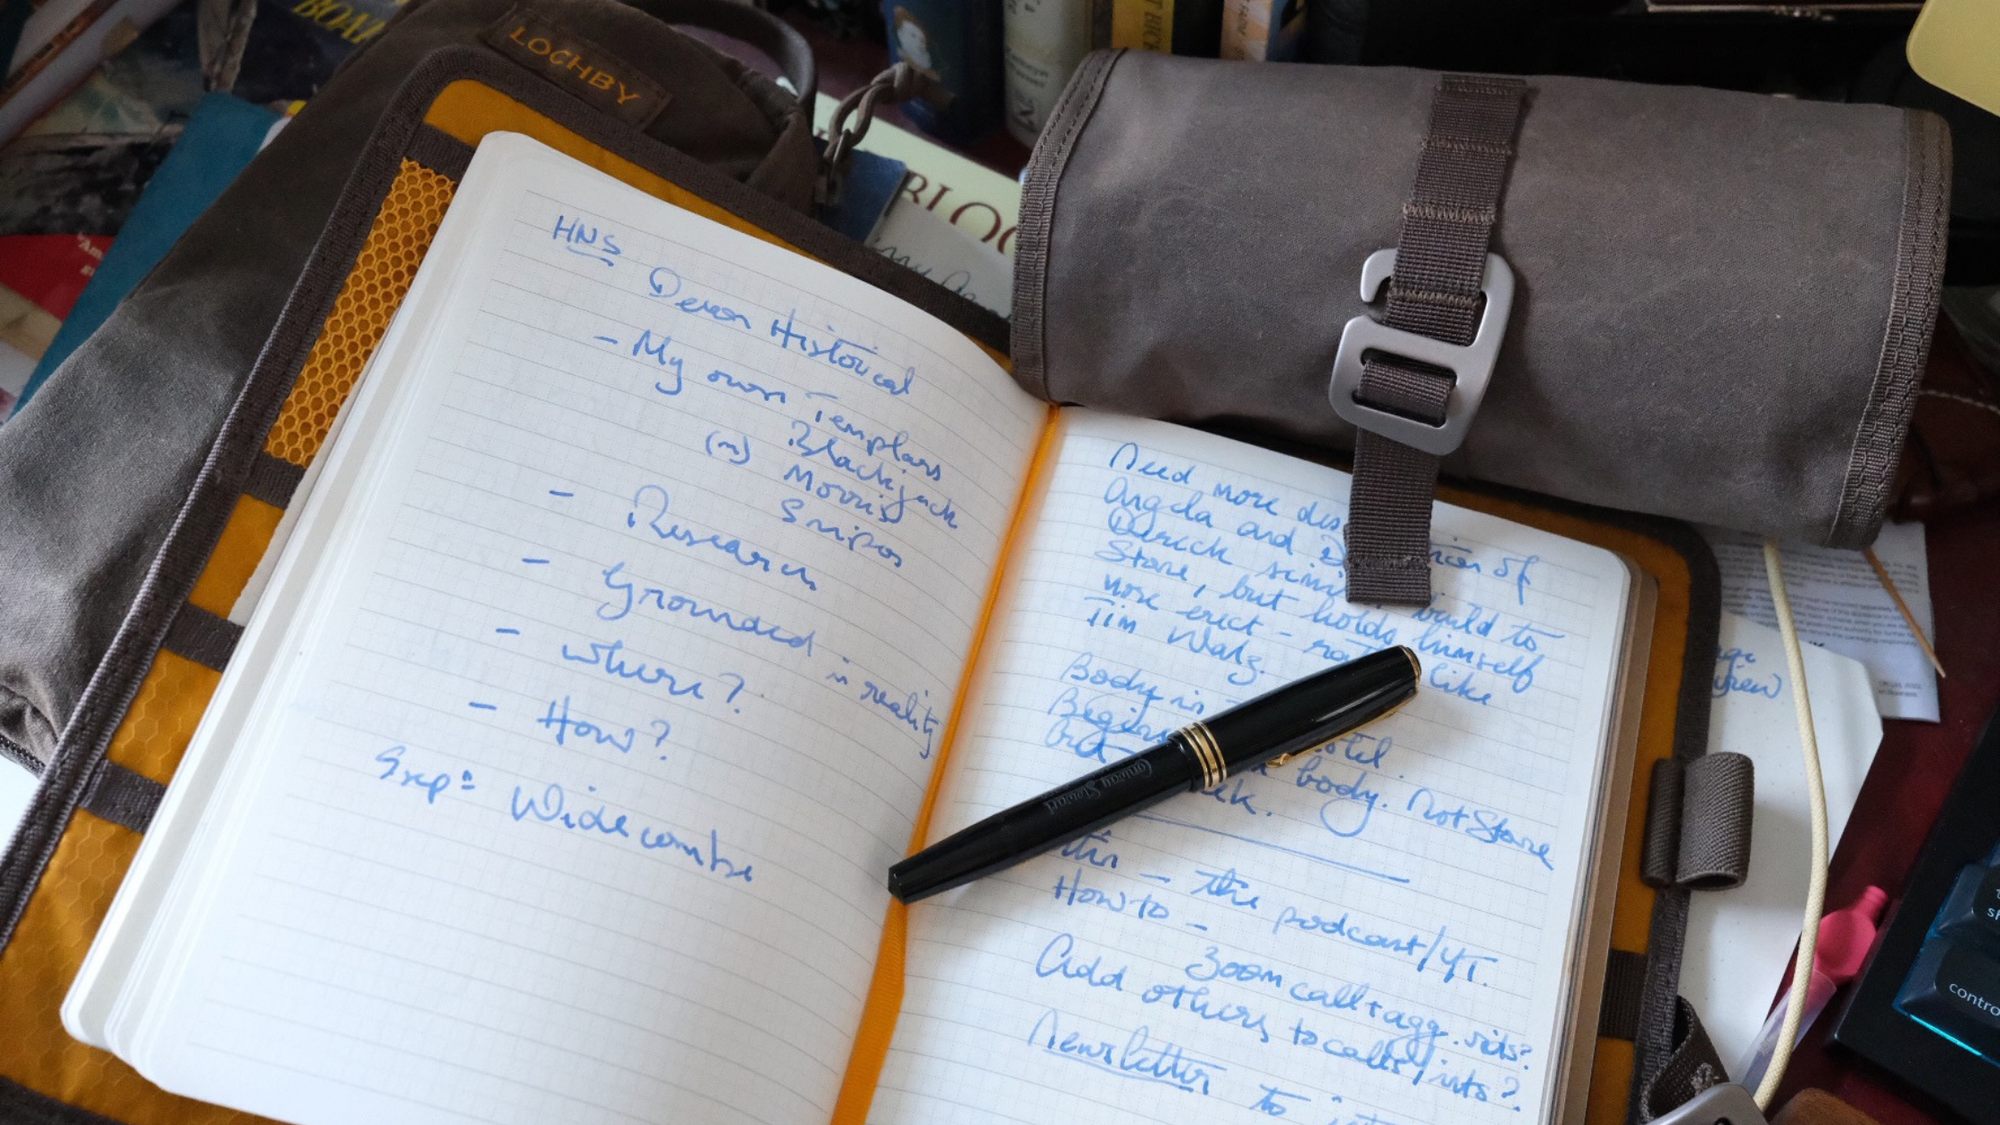 LOCHBY
BLOO
HNS
Devon Historical
- My own Templars
(m) Blackjack
Morris
Snipos
- Research
- Grounded in reality
- where?
- How?
Widecombe
Need more des
Angela and of
Derick build to
Stone, but holds himself
more erect - like
Tim Walz.
Body in
Begins
body. Not Stone
- the podcast/YT.
How to -
Zoom call + agg. vids?
Add others to calls/ints?
Newsletter to
contro